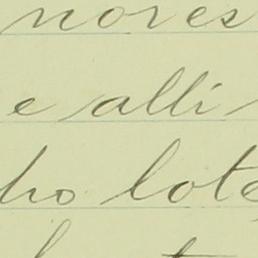 nores
e alli
ho lote